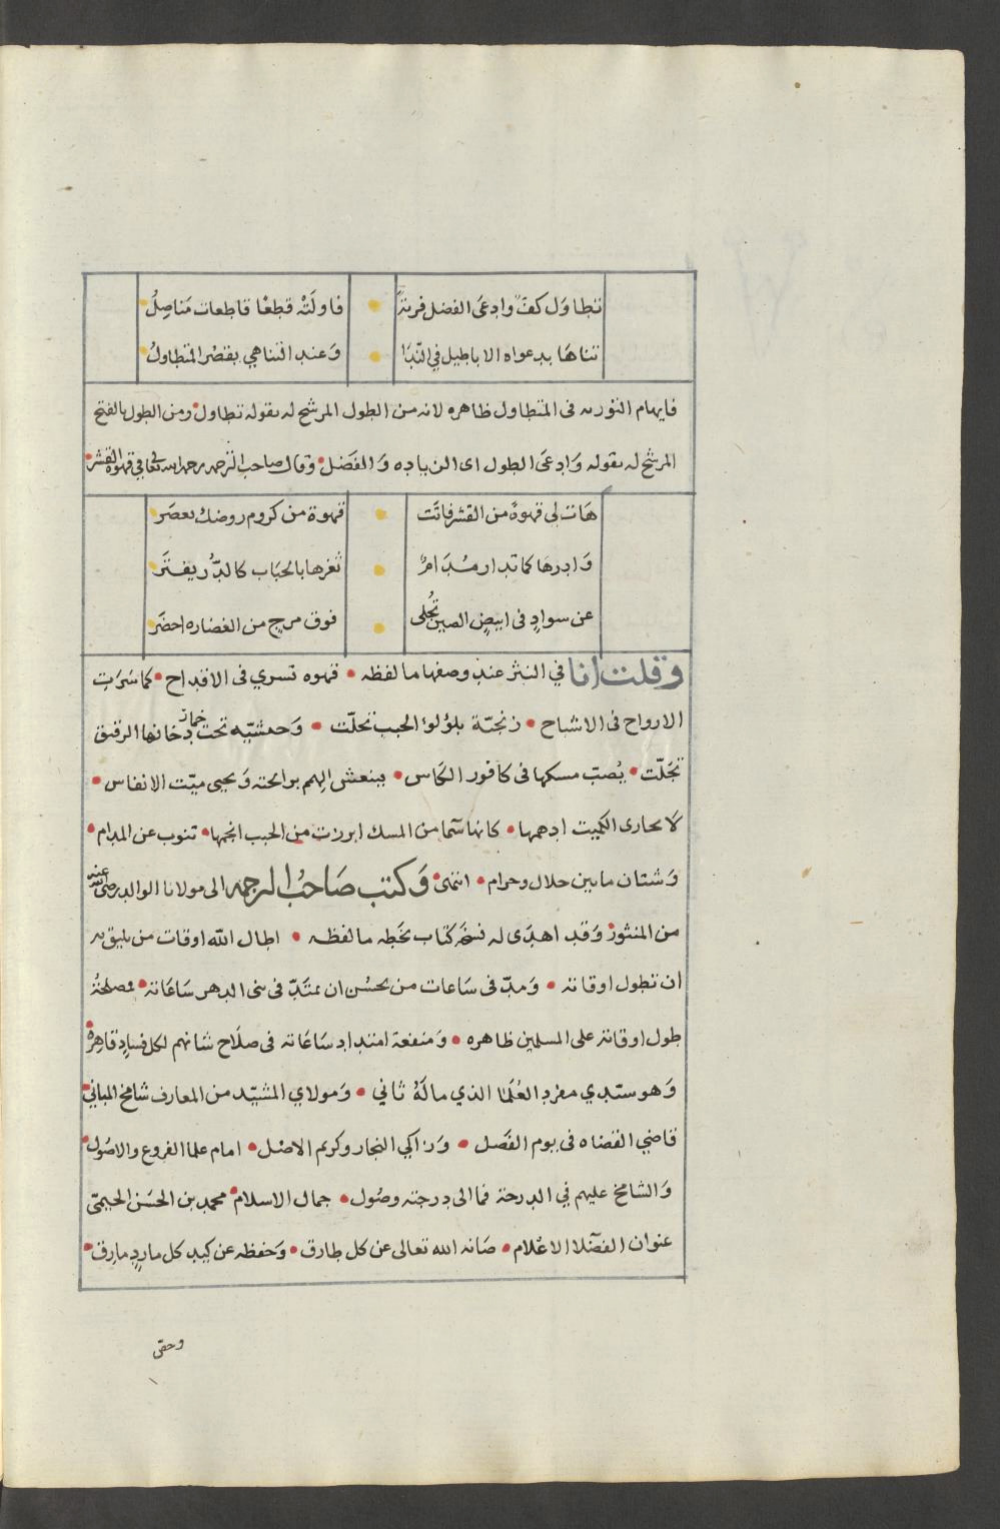 تطاول كفّ وادعى الفضل فرية • فاولته قطعا قاطعات مناصل
تناها بدعواه الاباطيل في الندا • وعند التناهي يقصر المتطاول
فايهام التوريه فى المتطاول ظاهره لانه من الطول المرشح له بقوله تطاول • ومن الطول بالفتح
المرشح له بقوله وادعى الطول اى الزياده والفضل • وقال صاحب الترجمه رحمه الله تعالى في قهوة القشر •
هات لى قهوة من القشر فاتت • قهوة من كروم روضك تعصر
وادرها كما تدار مدام • ثغرها بالحباب كالدر يفتر
عن سواد فى ابيض الصين تجلى • فوق مرج من الغضاره اخضر
وقلت انا في النثر عند وصفها ما لفظه • قهوه تسري فى الاقداح • كما سرت
الارواح فى الاشباح • زنجيّة بلؤلوء الحبب تحلّت • وحبشيّه تحت خمار دخانها الرقيق
تجلّت • يُصبّ مسكها فى كافور الكاس • فينعش الهم برايحته ويحيى ميّت الانفاس •
لا يجارى الكميت ادهمها • كانها سما من المسك ابرزت من الحبب انجمها • تنوب عن المدام •
وشتان مابين حلال وحرام • انتهى • وكتب صاحب الترجمه الى مولانا الوالد رضى الله عنه
من المنثور • وقد اهدى له نسخة كتاب بخطه ما لفظه • اطال الله اوقات من يليق به
ان تطول اوقاته • ومدّ فى ساعات من يحسُن ان تمتدّ فى بنى الدهر ساعاته • فمصلحة
طول اوقاته على المسلمين ظاهره • ومنفعة امتداد ساعاته فى صلاح شانهم لكل فساد قاهرة •
وهو سيدي مفرد العُلما الذي ماله ثاني • ومولاي المشيّد من المعارف شامخ المباني •
قاضي القضاه فى يوم الفصل • وزاكي النجار وكريم الاصل • امام علما الفروع والاصول •
والشامخ عليهم في الدرجة فما الى درجته وصول • جمال الاسلام • محمد بن الحسن الحيمىّ
عنوان الفضلا الاعلام • صانه الله تعالى عن كل طارق • وحفظه عن كيد كل مارد مارق •
وحقى